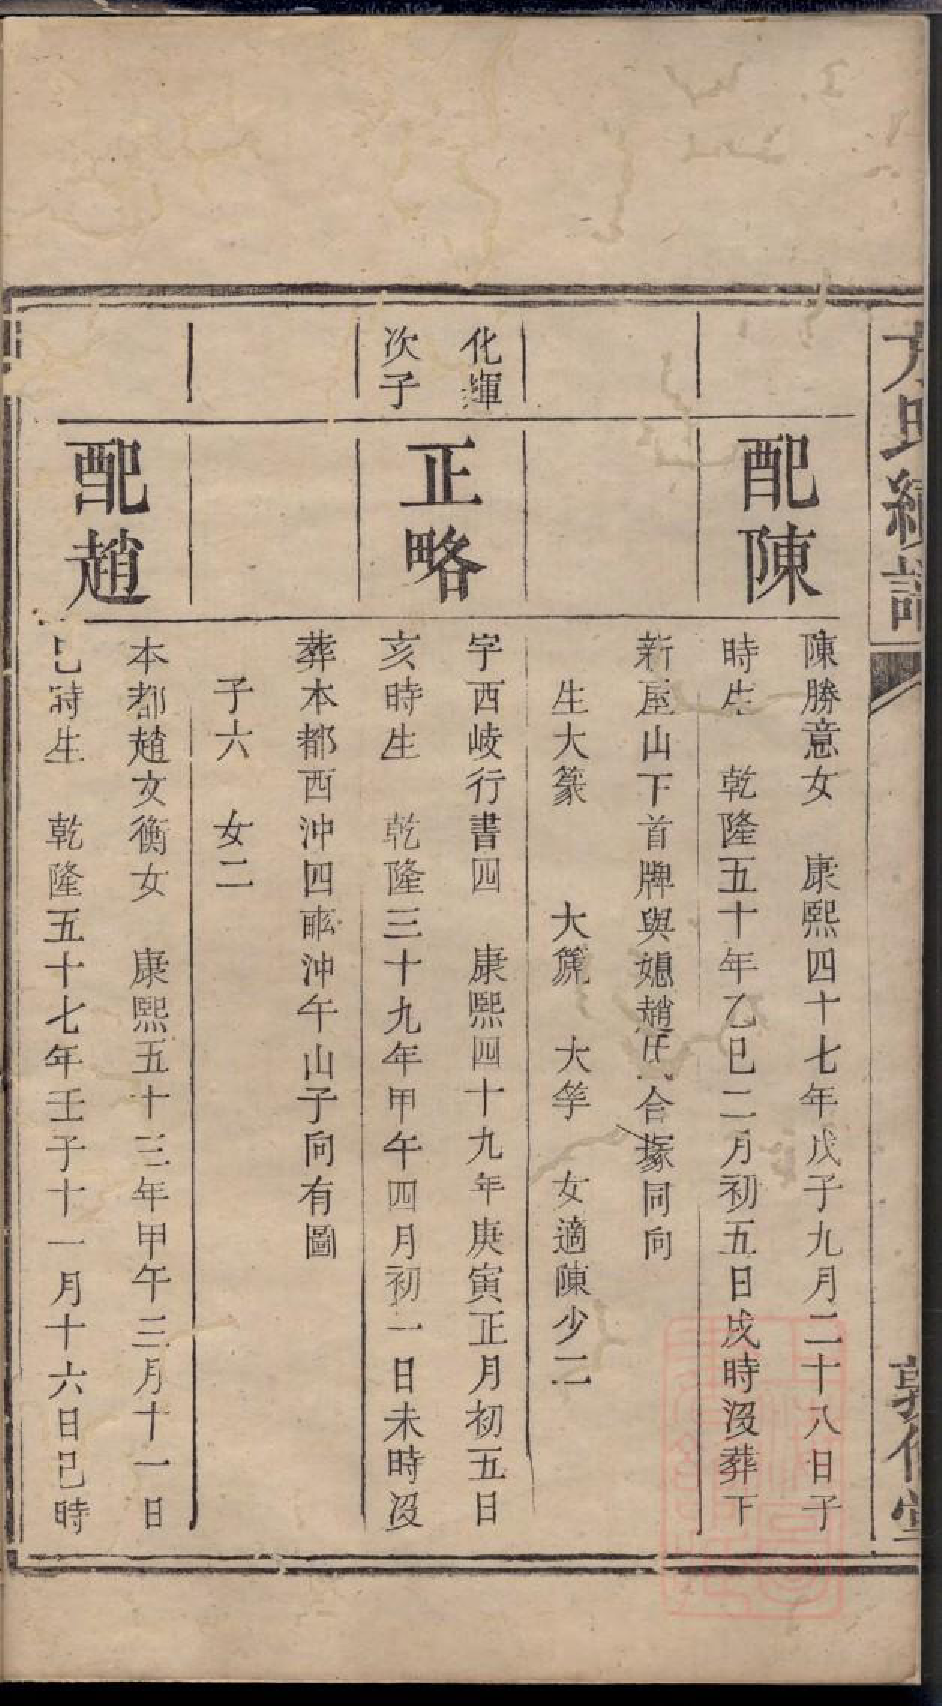 方氏續譜
敦倫堂
配陳
陳勝意女 康熙四十七年戊子九月二十八日子
時生 乾隆五十年乙巳二月初五日戌時沒葬下
新屋山下首牌與媳趙氏合塚同向
生大篆 大箎 大竽 女適陳少二
化輝
次子
正略
字西岐行書四 康熙四十九年庚寅正月初五日
亥時生 乾隆三十九年甲午四月初一日未時沒
葬本都西沖四畝沖午山子向有圖
子六 女二
配趙
本都趙文衡女 康熙五十三年甲午三月十一日
巳時生 乾隆五十七年壬子十一月十六日巳時